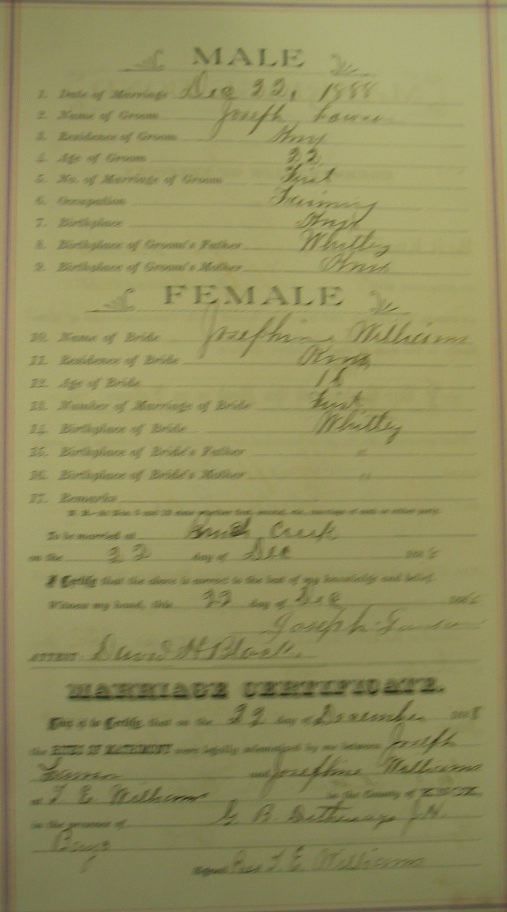 MALE
1. Date of Marriage Dec 22, 1888
2. Name of Groom Joseph
3. Residence of Groom Knox
4. Age of Groom 22
5. No. of Marriage of Groom First
6. Occupation Farming
7. Birthplace Knox
8. Birthplace of Groom's Father Whitley
9. Birthplace of Groom's Mother Knox
FEMALE
10. Name of Bride Josephine Williams
11. Residence of Bride Knox
12. Age of Bride
13. Number of Marriage of Bride First
14. Birthplace of Bride Whitley
15. Birthplace of Bride's Father "
16. Birthplace of Bride's Mother "
17. Remarks
To be married at Creek
on the 22 day of Dec 188
I Certify that the above is correct to the best of my knowledge and belief.
Witness my hand, this 22 day of Dec 188
Joseph
ATTEST: David H Black
MARRIAGE CERTIFICATE.
This is to Certify, that on the 22 day of December 1888
the RITES OF MATRIMONY were legally solemnized by me between Joseph
and Josephine Williams
at T E Williams in the County of KNOX,
in the presence of G B
Bays
Signed Rev T E Williams